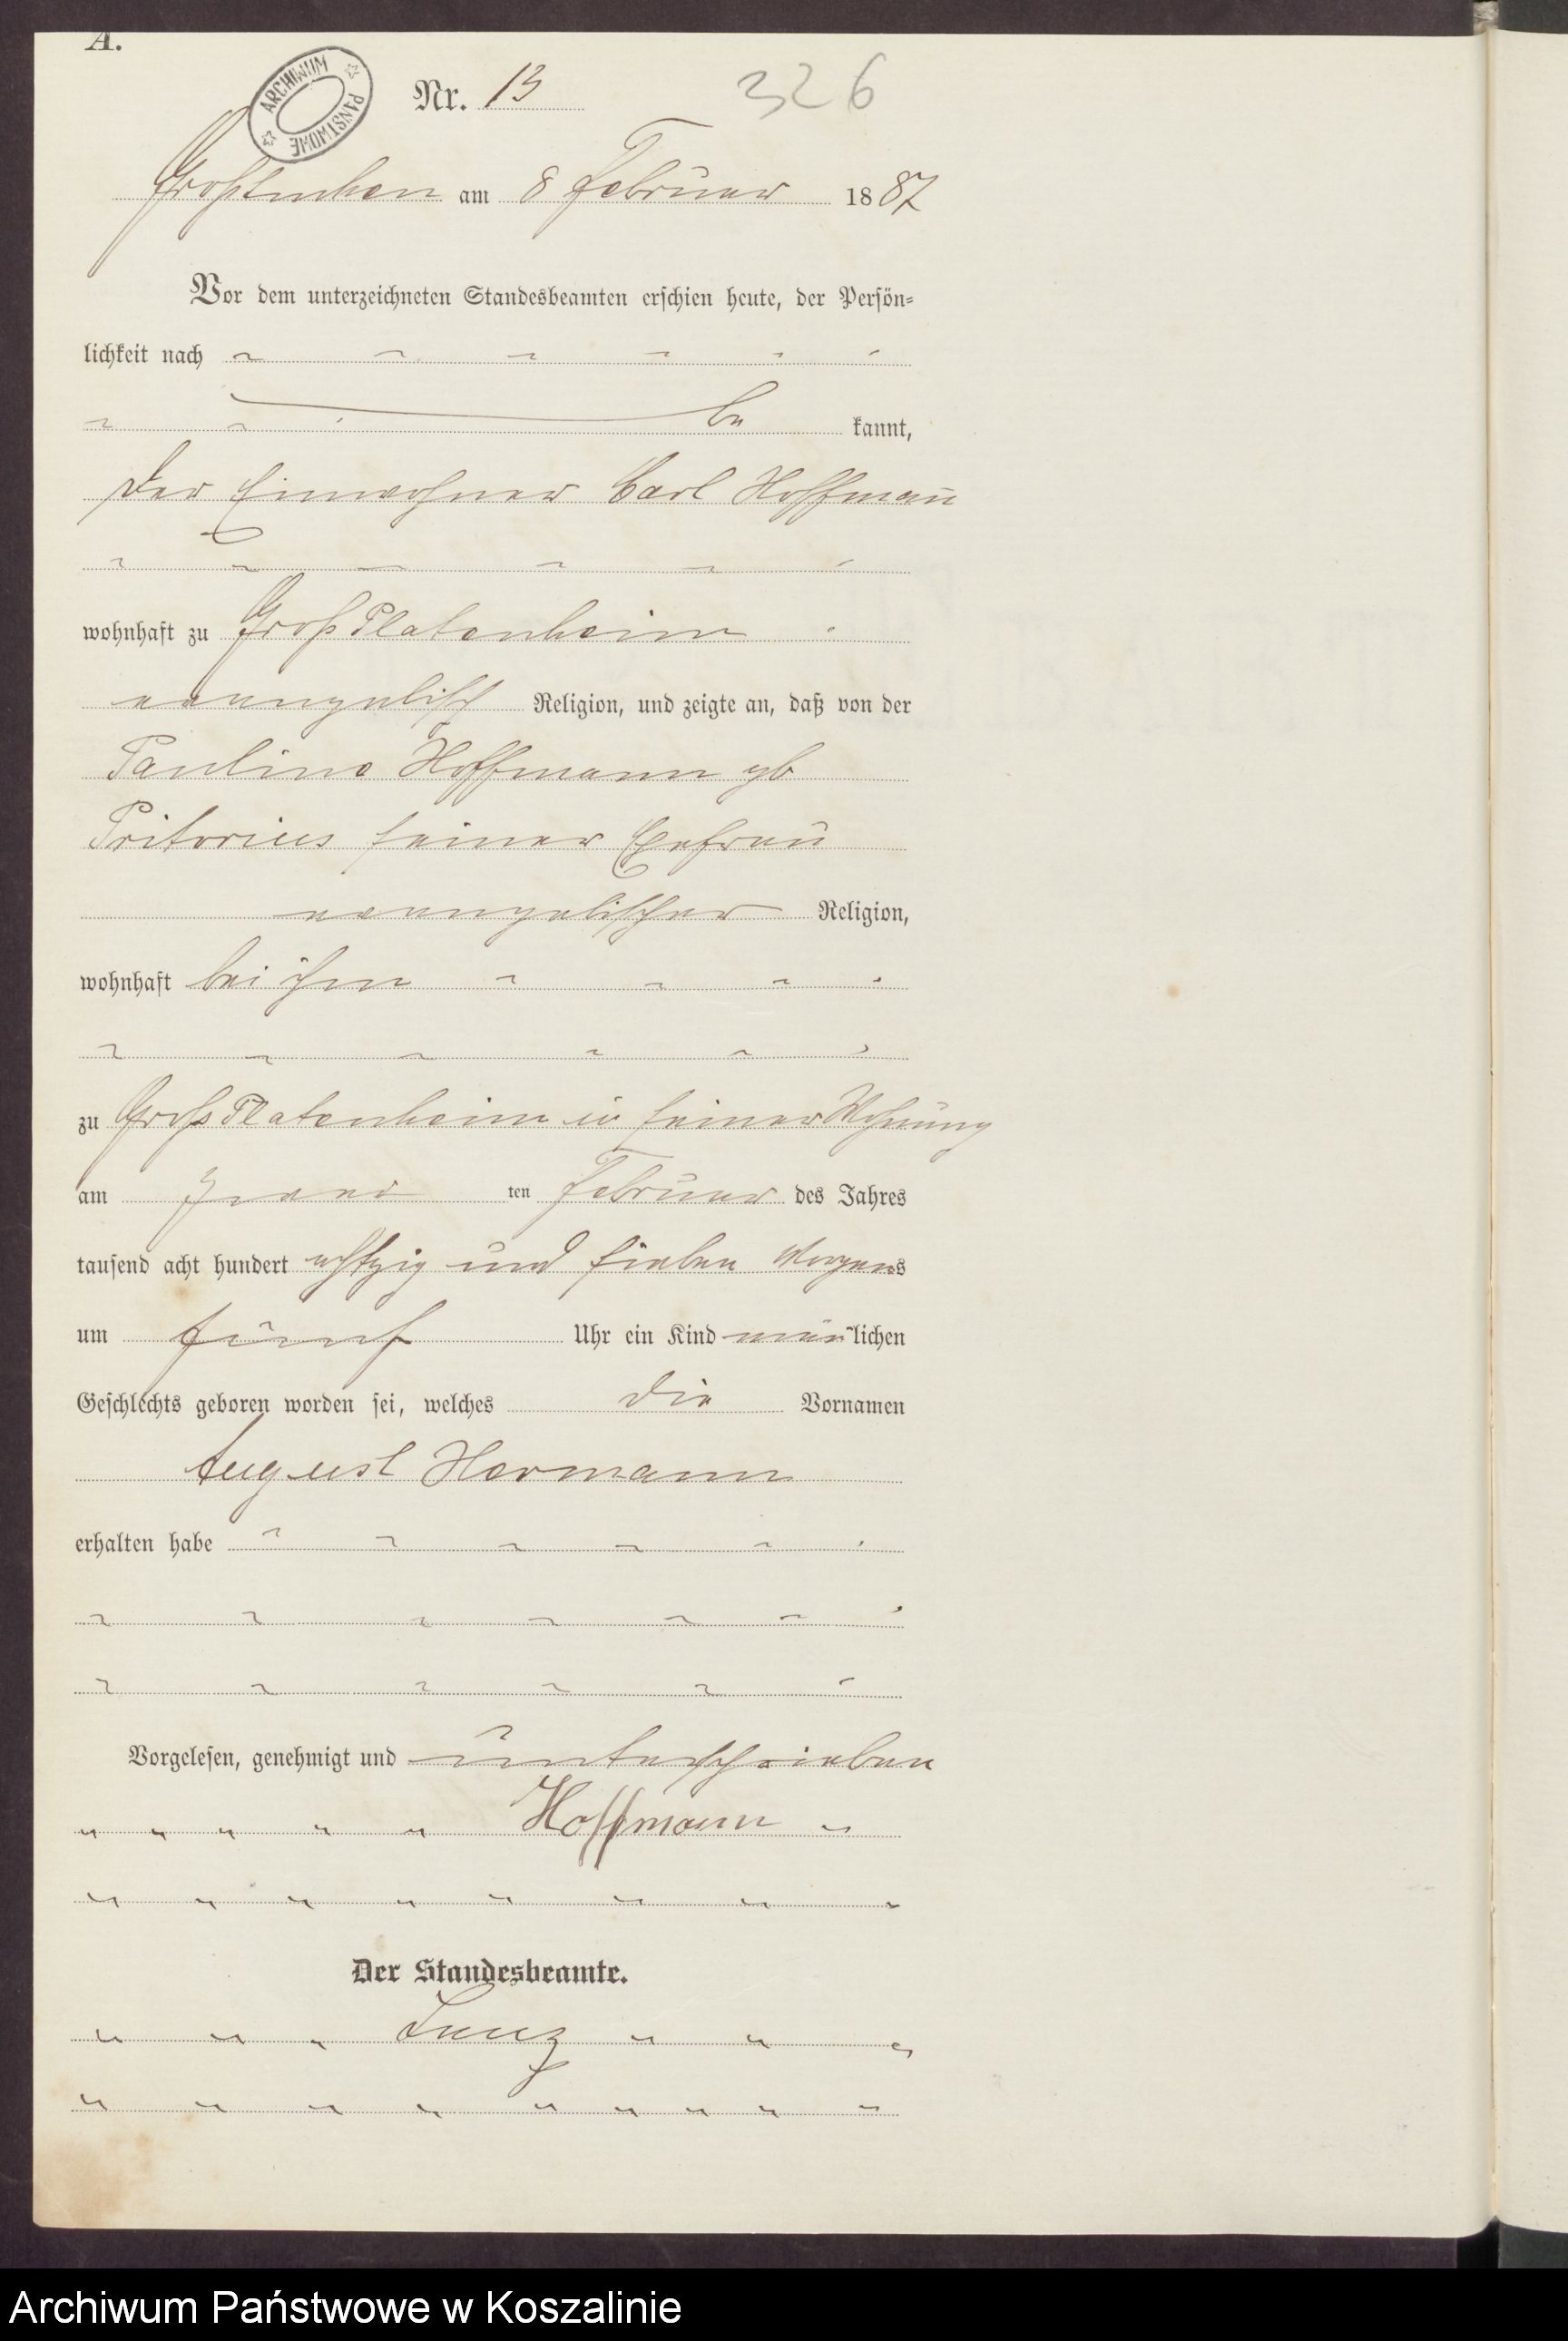 A.
ARCHIWUM PAŃSTWOWE
Nr. 13 326
Großtuchen am 8 Februar 1887
Vor dem unterzeichneten Standesbeamten erschien heute, der Persön-
lichkeit nach
be kannt,
der Einwohner Carl Hoffmann
wohnhaft zu Groß Platenheim
evangelisch Religion, und zeigte an, daß von der
Pauline Hoffmann gb
Pritorius seiner Ehefrau
evangelischer Religion,
wohnhaft bei ihm
zu Groß Platenheim in seiner Wohnung
am zwei ten Februar des Jahres
tausend acht hundert achtzig und sieben Morgens
um fünf Uhr ein Kind männlichen
Geschlechts geboren worden sei, welches die Vornamen
August Hermann
erhalten habe
Vorgelesen, genehmigt und unterschrieben
Hoffmann
Der Standesbeamte.
Archiwum Państwowe w Koszalinie